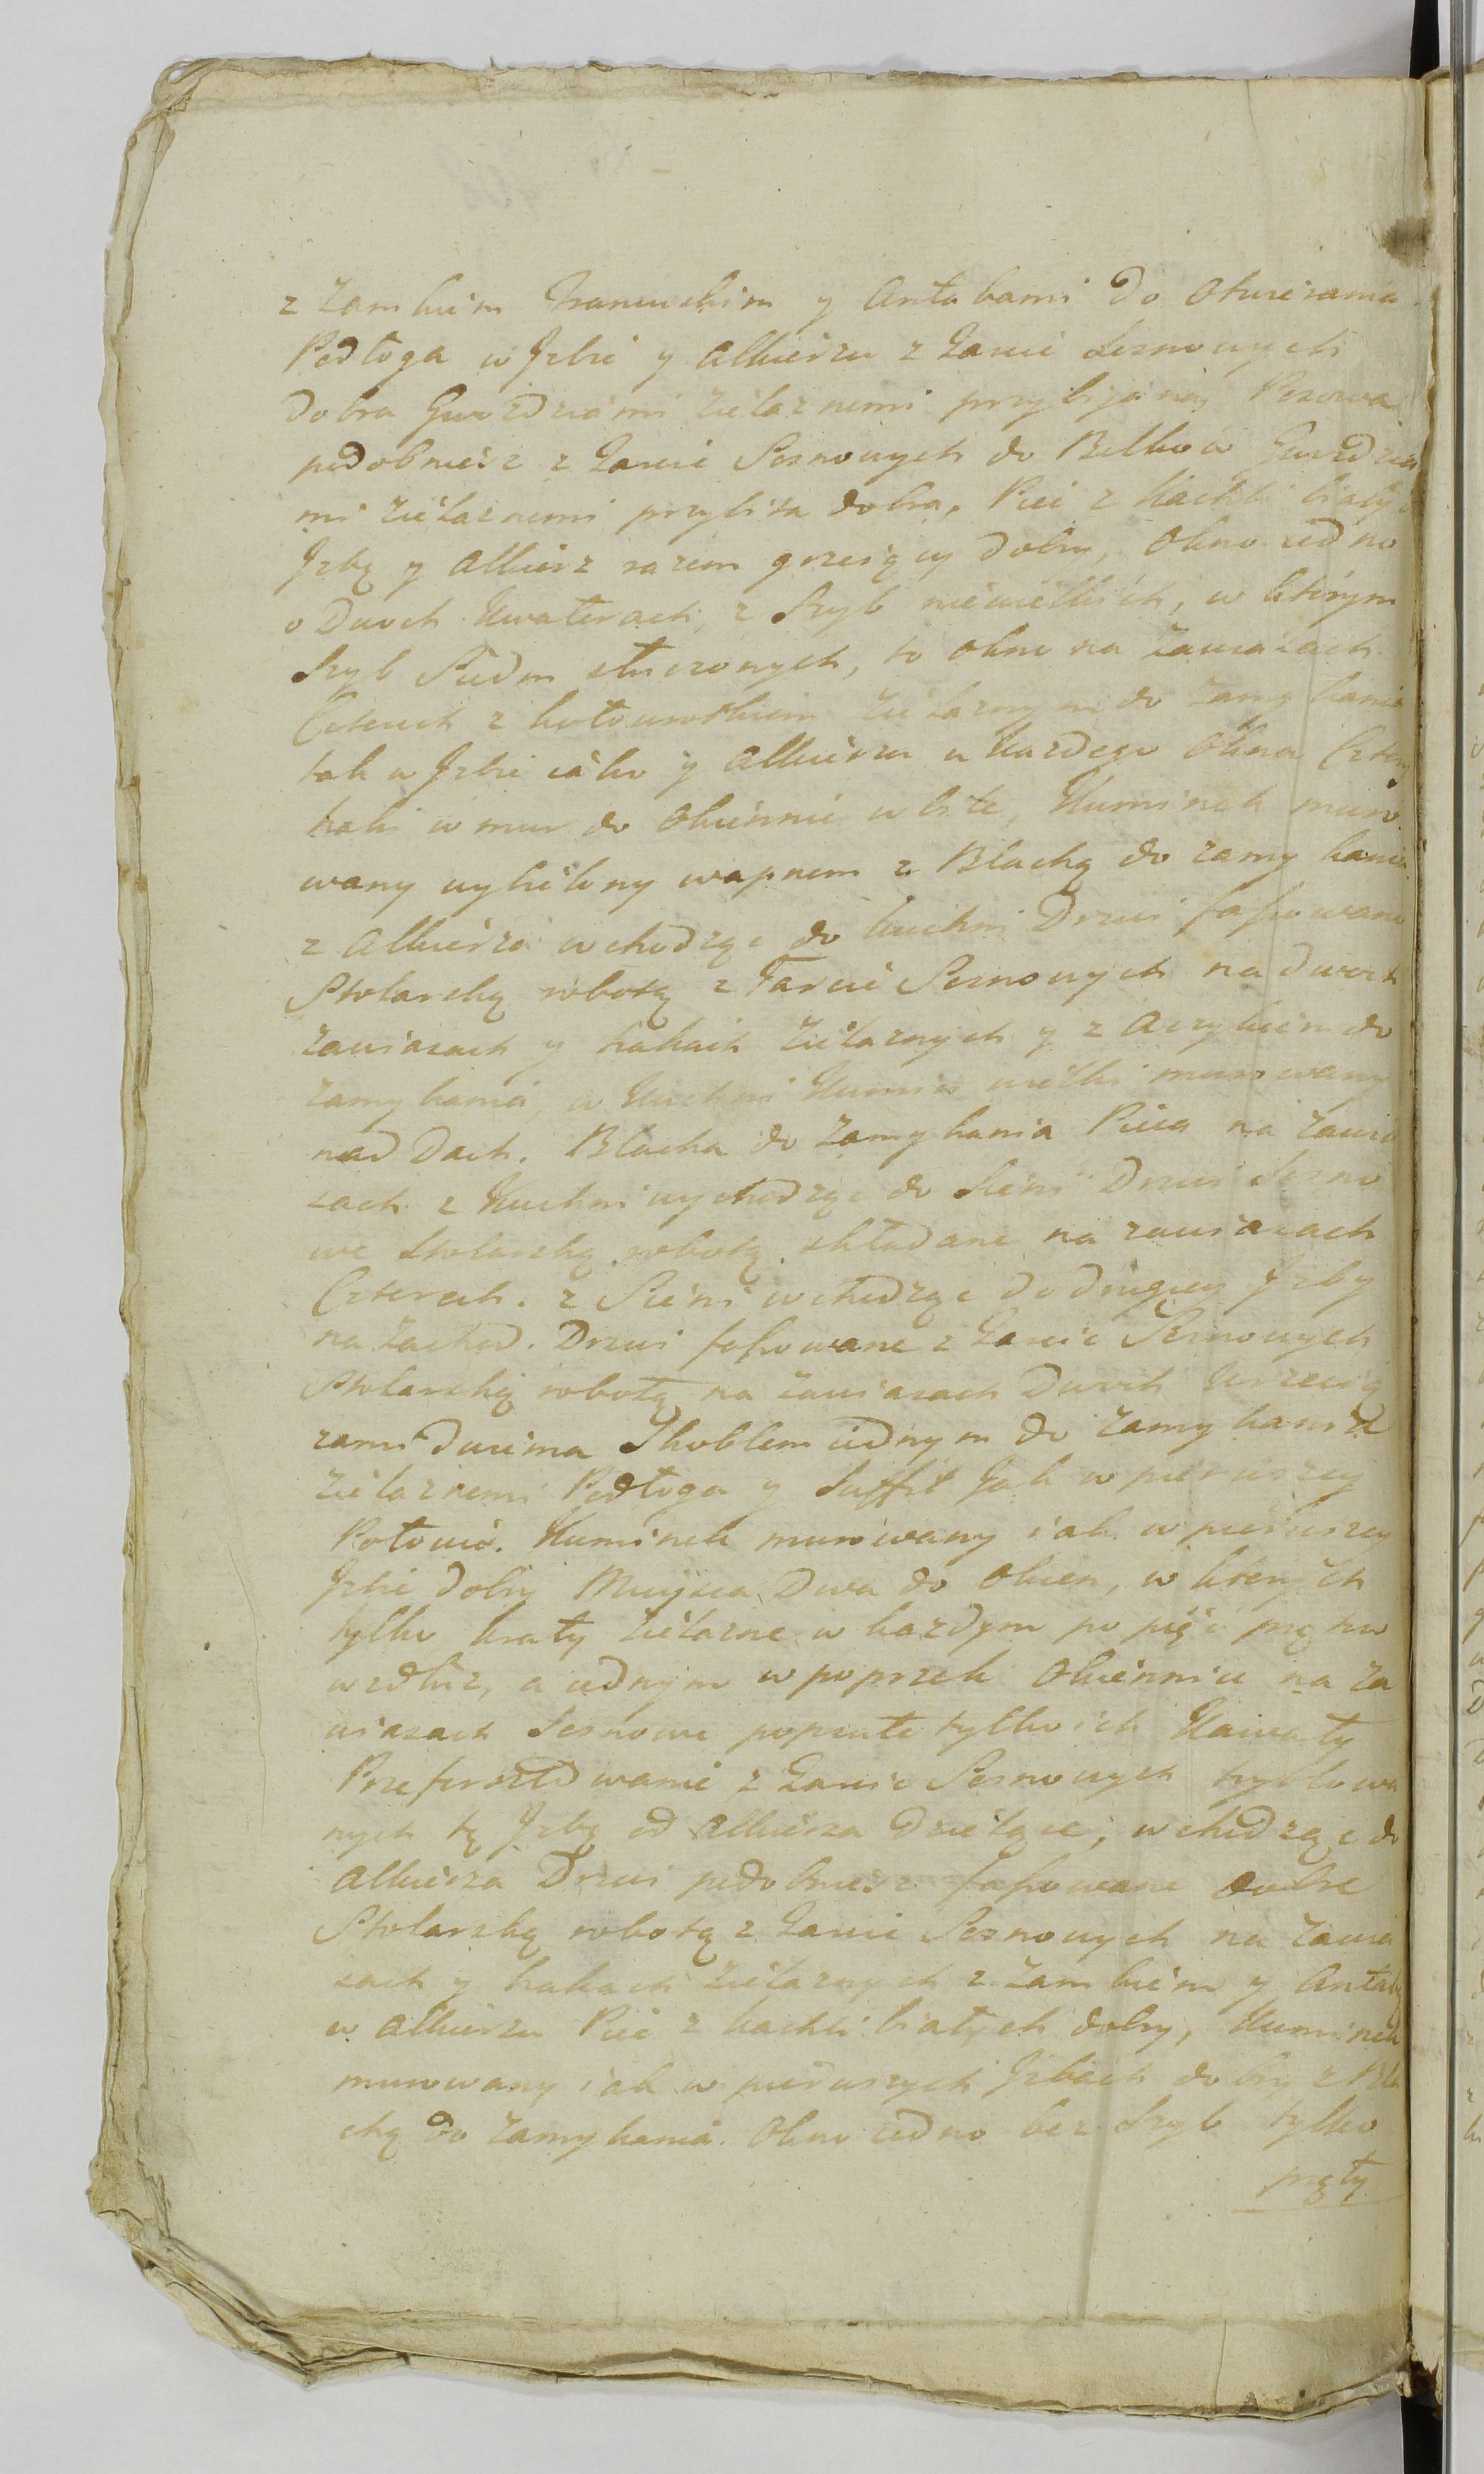 z Zamkiem Francuskim y Antabami do otwierania
Podłoga w Jzbie y Alkierzu z Tarcic Sosnowych
dobra Gwozdziami żelaznemi przybijana, Posowa
podobnież z Tarcic Sosnowych do Belkow Gwozdzia
mi żelaznemi przybita dobra, Piec z Kachli biały
Jzbę y Alkierz razem grzeiący dobry, Okno iedno
o Dwoch Kwaterach, z Szyb niewielkich, w którym
Szyb Siedm stłuczonych, to okno na Zawiasach
Czterech z kołowrotkiem żelaznym do Zamykania
tak w Jzbie iako y Alkierzu u każdego Okna Cztery
haki w mur do Okiennic wbite, Kuminek muro
wany wybielony wapnem z Blachą do zamykania
z Alkierza wchodząc do kuchni Drzwi fasowane
Stolarską robotą z Tarcic Sosnowych na dwoch
Zawiasach y hakach żelaznych y z Aczykiem do
Zamykania, w Kuchni Kumin wielki murowany
nad Dach. Blacha do Zamykania Pieca na Zawia
sach z Kuchni wychodząc do Sieni Drzwi Sosno
we Stolarską robotą składane na zawiasach
Czterech. z Sieni wchodząc do drugiey Jzby
na Zachod. Drzwi fasowane z Tarcic Sosnowych
Stolarską robotą na Zawiasach Dwoch Wrzecią
zami dwiema Skoblem iednym do Zamykania
żelaznemi Podłoga y Suffit Jak w pierwszey
Połowie. Kuminek murowany iak w pierwszey
Jzbie dobry Mieysca Dwa do Okien, w których
tylko kraty żelazne w każdym po pięć prętow
wzdłuz, a iednym w poprzek Okiennice na Za
wiasach Sosnowe popsute tylko ich Kawałty
Przeforsztowanie z Tarcic Sosnowych hyblowa
nych tę Jzbę od Alkierza Dzielące, wchodząc do
Alkierza Drzwi podobniesz fasowane dobre
Stolarską robotą z Tarcic Sosnowych na Zawia
sach y hakach żelaznych z Zamkiem y Antabą
w Alkierzu Piec z kachli białych dobry, Kuminek
murowany iak w pierwszych Jzbach dobry z Bla
chą do Zamykania. Okno iedno bez Szyb tylko
pręty